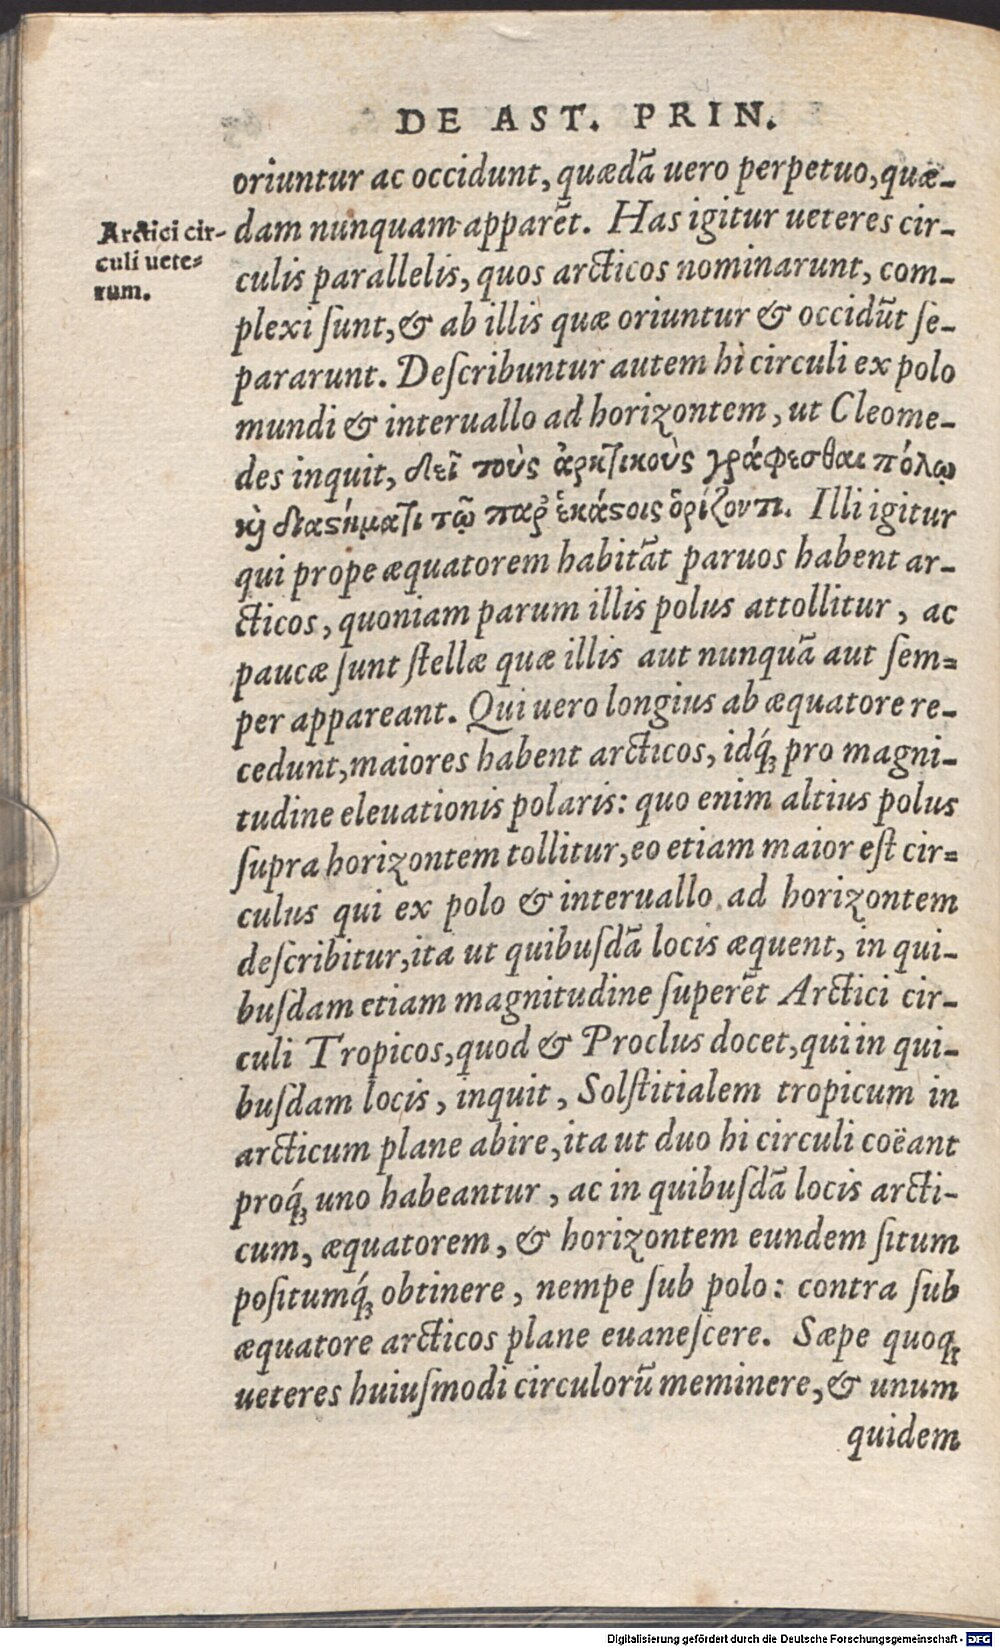 DE AST. PRIN.
oriuntur ac occidunt, quædã uero perpetuo, quæ-
Arctici cir-
culi uete=
rum.
dam nunquam apparẽt. Has igitur ueteres cir-
culis parallelis, quos arcticos nominarunt, com-
plexi ſunt, & ab illis quæ oriuntur & occidũt ſe-
pararunt. Deſcribuntur autem hi circuli ex polo
mundi & interuallo ad horizontem, ut Cleome-
des inquit, δεῖ τοὺς ἀρκτικοὺς γράφεσθαι πόλῳ
ϗ̀ διαϛήματι τῷ παρ᾽ ἑκάϛοις ὁρίζοντι. Illi igitur
qui prope æquatorem habitãt paruos habent ar-
cticos, quoniam parum illis polus attollitur, ac
paucæ ſunt ſtellæ quæ illis aut nunquã aut ſem=
per appareant. Qui uero longius ab æquatore re-
cedunt, maiores habent arcticos, idq́ꝫ pro magni-
tudine eleuationis polaris: quo enim altius polus
ſupra horizontem tollitur, eo etiam maior eſt cir=
culus qui ex polo & interuallo ad horizontem
deſcribitur, ita ut quibuſdã locis æquent, in qui-
buſdam etiam magnitudine ſuperẽt Arctici cir-
culi Tropicos, quod & Proclus docet, qui in qui-
buſdam locis, inquit, Solſtitialem tropicum in
arcticum plane abire, ita ut duo hi circuli coëant
proq́ꝫ uno habeantur, ac in quibuſdã locis arcti-
cum, æquatorem, & horizontem eundem ſitum
poſitumq́ꝫ obtinere, nempe ſub polo: contra ſub
æquatore arcticos plane euaneſcere. Sæpe quoqꝫ
ueteres huiuſmodi circulorũ meminere, & unum
quidem
Digitalisierung gefördert durch die Deutsche Forschungsgemeinschaft - DFG